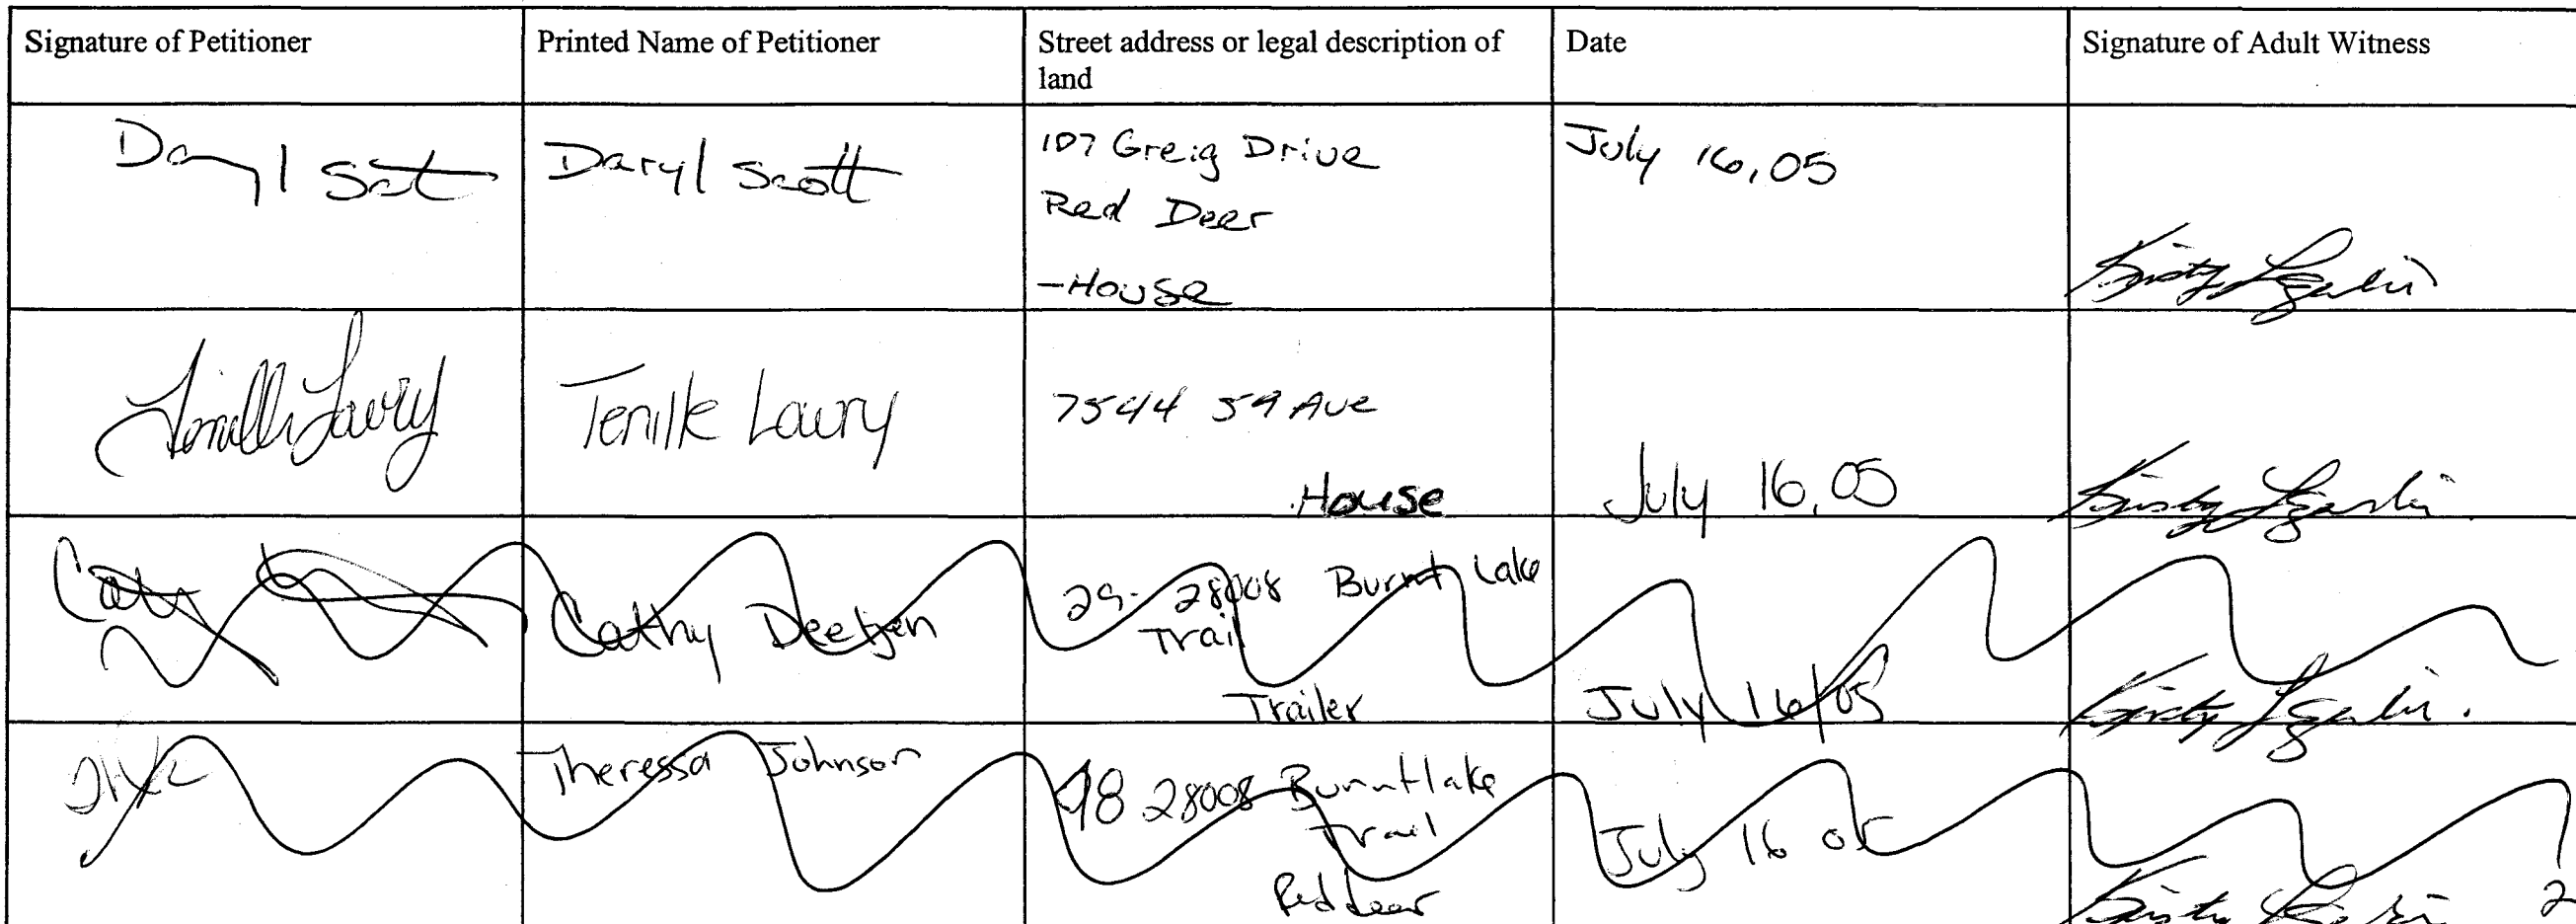 Signature of Petitioner
Printed Name of Petitioner
Street address or legal description of
land
Date
Signature of Adult Witness
Daryl Scott
Daryl Scott
107 Greig Drive
Red Deer
-House
July 16,05
Kirsty
Tenille Lawry
Tenille Lawry
7544 59 Ave
House
July 16,05
Kirsty
Cathy
Cathy
29- 28008 Burnt Lake
Trail
Trailer
July 16/05
Kirsty
Theressa Johnson
28008 Burntlake
Trail
Red Deer
July 16 05
Kirsty
2